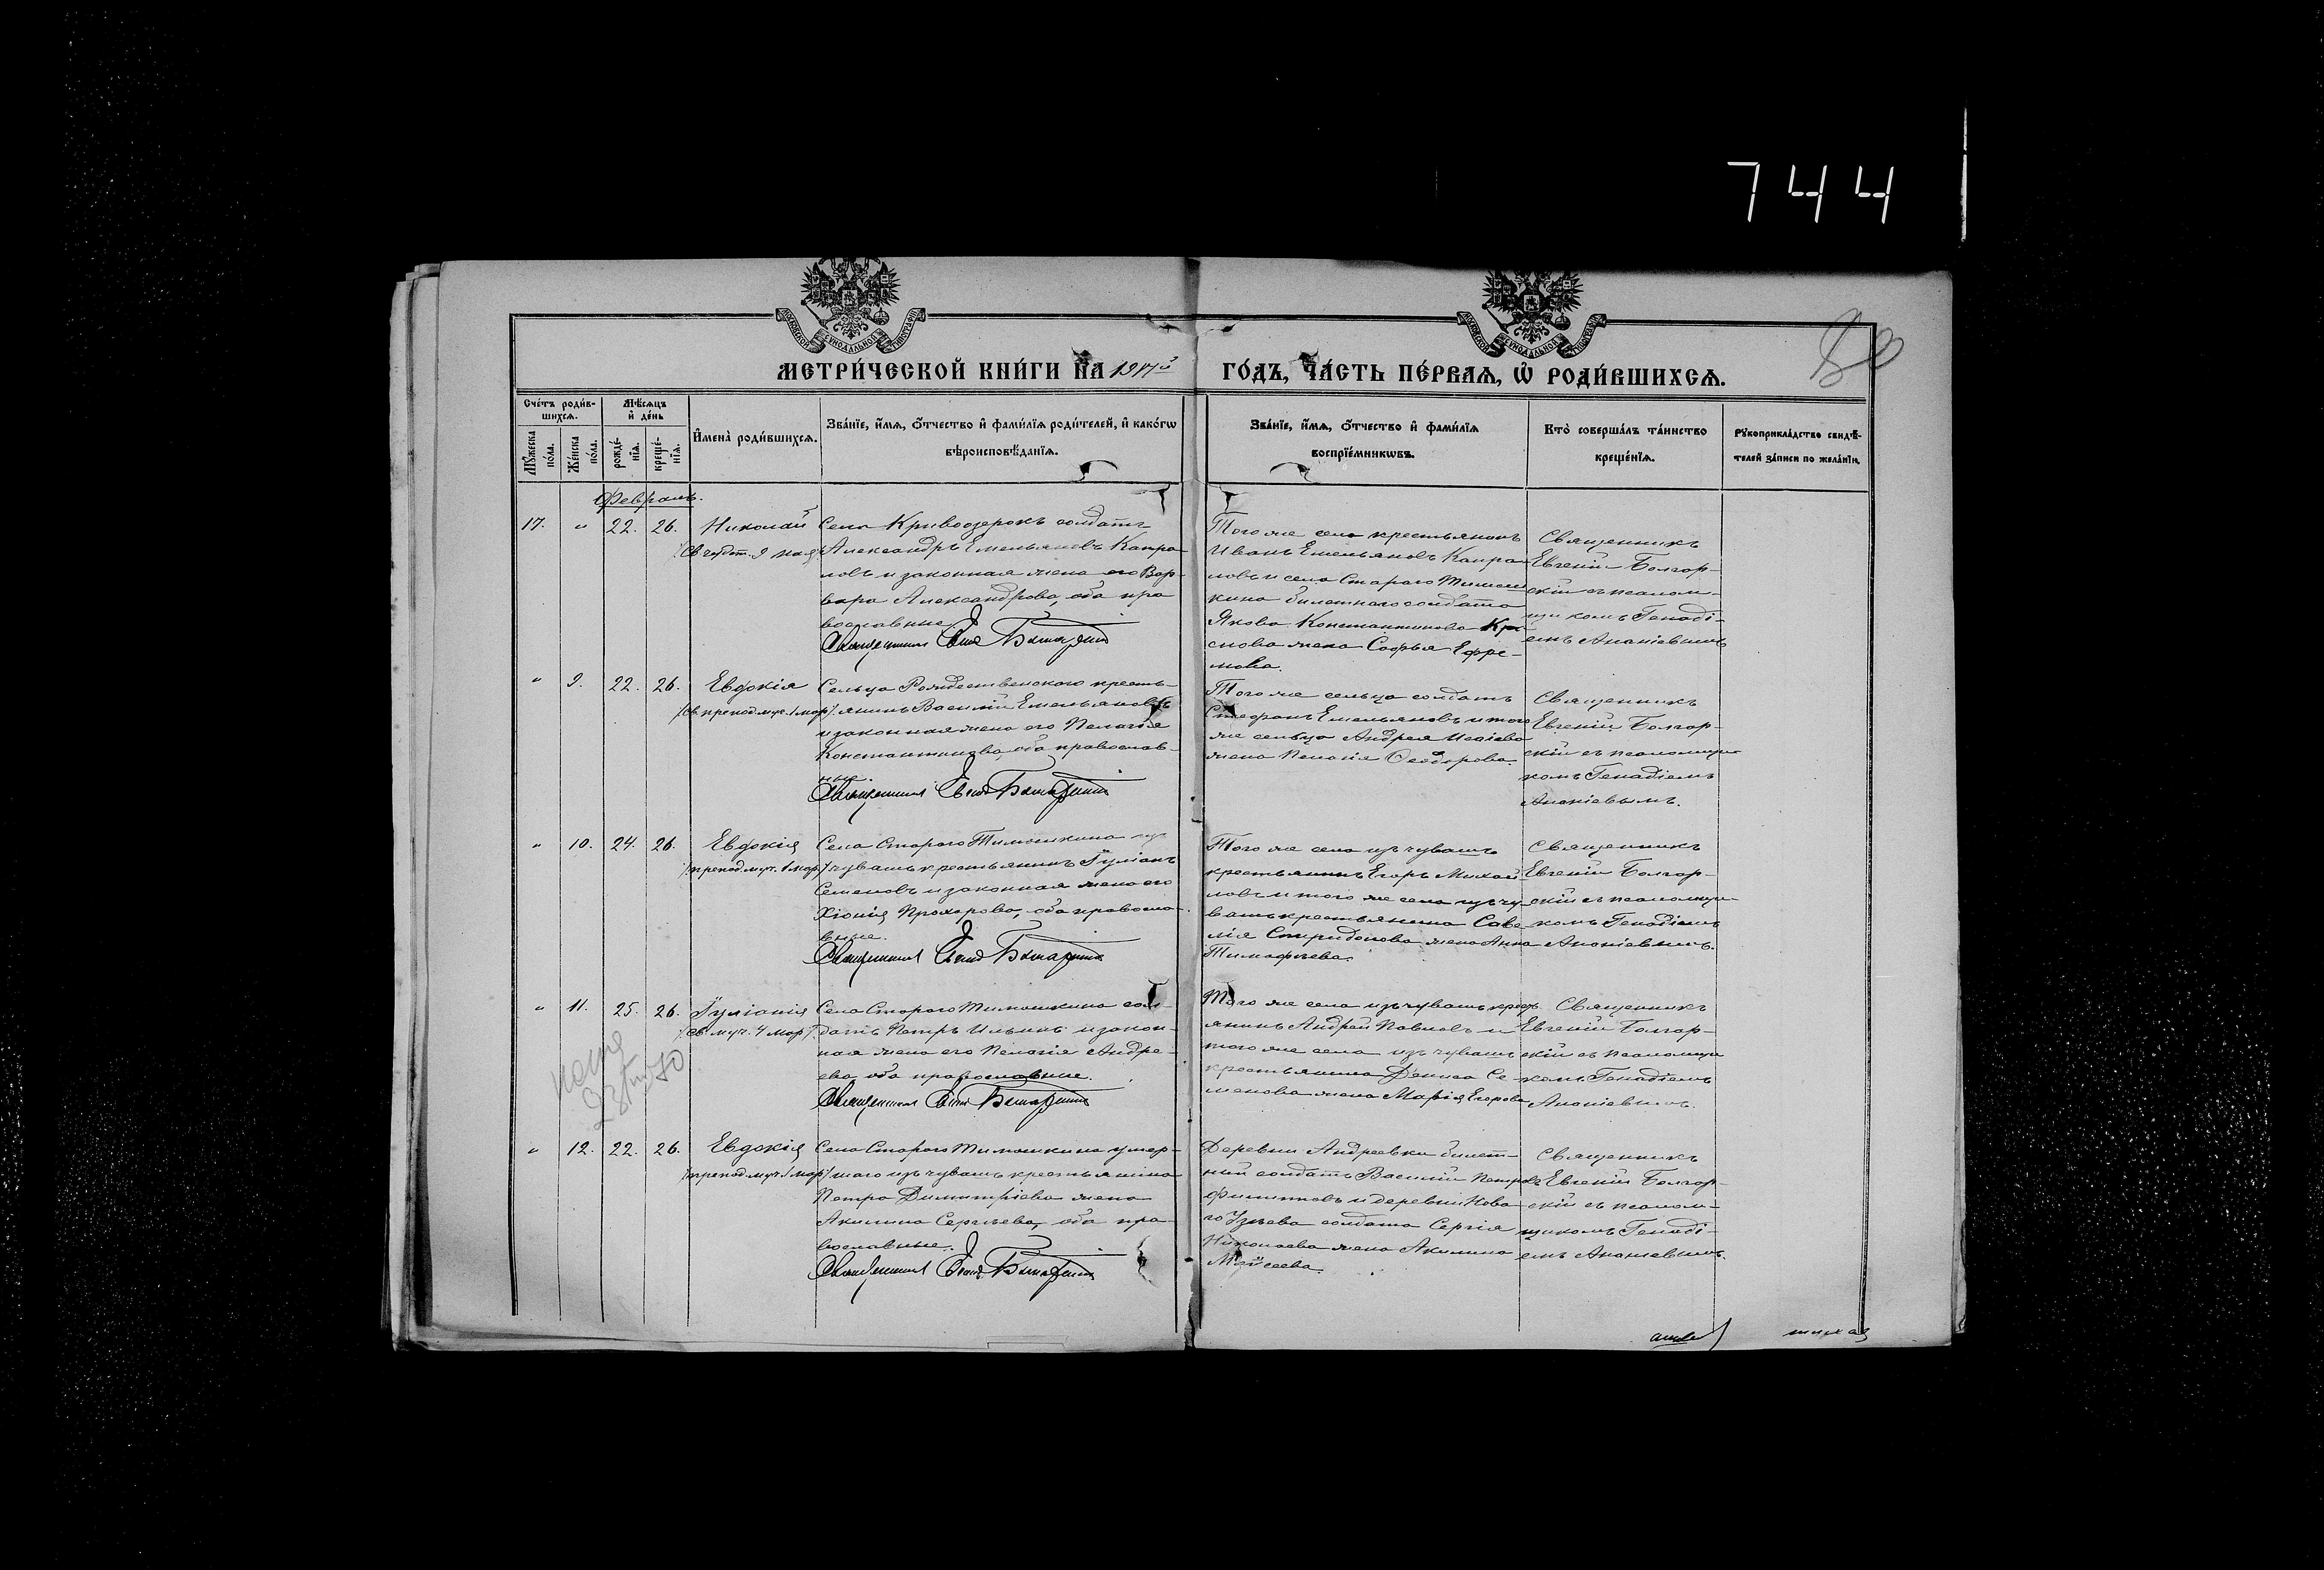 744
80
МЕТРИ́ЧЕСКОЙ КНИ́ГИ НА 1917й ГО́ДЪ, ЧА́СТЬ ПЕ́РВАЯ, Ѡ҆ РОДИ́ВШИХСЯ.
Сче́тъ роди́в-
шихся.
Му́жеска по́ла.
Же́нска по́ла.
Мѣ́сяцъ
и҆ де́нь
рожде́-
нїя.
креще́-
нїя.
И҆мена̀ роди́вшихся.
Зва́нїе, и҆́мя, о҆́тчество и҆ фами́лїя роди́телей, и҆ како́гѡ
вѣроисповѣ́данїя.
Зва́нїе, и҆́мя, о҆́тчество и҆ фами́лїя
воспрїе́мникѡвъ.
Кто̀ соверша́лъ та́инство
креще́нїя.
Рꙋкоприкла́дство свидѣ́-
телей за́писи по жела́нїю.
Февраль.
17. " 22. 26. Николай
/св. чудот. 9 мая/
Села Кривоозерокъ солдатъ
Александръ Емельяновъ Капра-
ловъ и законная жена его Вар-
вара Александрова, оба пра
вославные.
Священникъ
Того же села крестьянинъ
Иванъ Емельяновъ Капра-
ловъ и села Стараго Тимош
кина билетнаго солдата
Якова Константинова
снова жена Софья Ефре-
мова.
Священникъ
Евгеній Болгар-
скій съ псалом-
щикомъ Генаді-
емъ Ананіевымъ
" 9. 22. 26. Евдокія
/св. препод. муч. 1 мар/
Сельца Рождественскаго кресть-
янинъ Василій Емельяновъ
и законная жена его Пелагія
Константинова, оба православ-
ные.
Священникъ
Того же сельца солдатъ
Стефанъ Емельяновъ и того
же сельца Андрея Исаіева
жена Пелагія Ѳеодорова.
Священникъ
Евгеній Болгар-
скій съ псаломщи-
комъ Генадіемъ
Ананіевымъ.
" 10. 24. 26. Евдокія
/препод. муч. 1 мар/
Села Стараго Тимошкина изъ
чувашъ крестьянинъ Іуліанъ
Семеновъ и законная жена его
Хіонія Прохорова, оба правосла-
вные.
Священникъ
Того же села изъ чувашъ
крестьянинъ Егоръ Михай-
ловъ и того же села изъ чу-
вашъ крестьянина Саве
лія Спиридонова жена Анна
Тимофѣева.
Священникъ
Евгеній Болгар-
скій съ псаломщи-
комъ Генадіемъ
Ананіевымъ.
" 11. 25. 26. Іуліанія
/св. муч. 4 мар/
Села Стараго Тимошкина сол-
датъ Петръ Ильинъ и закон-
ная жена его Пелагія Андре-
ева оба православные.
Священникъ
Того же села изъ чувашъ крест-
янинъ Андрей Павловъ и
того же села изъ чувашъ
крестьянина Дениса Се-
менова жена Марія Егорова
Священникъ
Евгеній Болгар-
скій съ псаломщи
комъ Генадіемъ
Ананіевымъ.
" 12. 22. 26. Евдокія
/препод. муч. 1 мар/
Села Стараго Тимошкина умер-
шаго изъ чувашъ крестьянина
Петра Димитріева жена
Акилина Сергѣева, оба пра-
вославные.
Священникъ
Деревни Андреевки билет-
ный солдатъ Василій Петровъ
Филипповъ и деревни Нова-
го Узѣева солдата Сергія
Николаева жена Акилина
Моисеева.
Священникъ
Евгеній Болгар-
скій съ псалом-
щикомъ Генаді-
емъ Ананіевымъ.